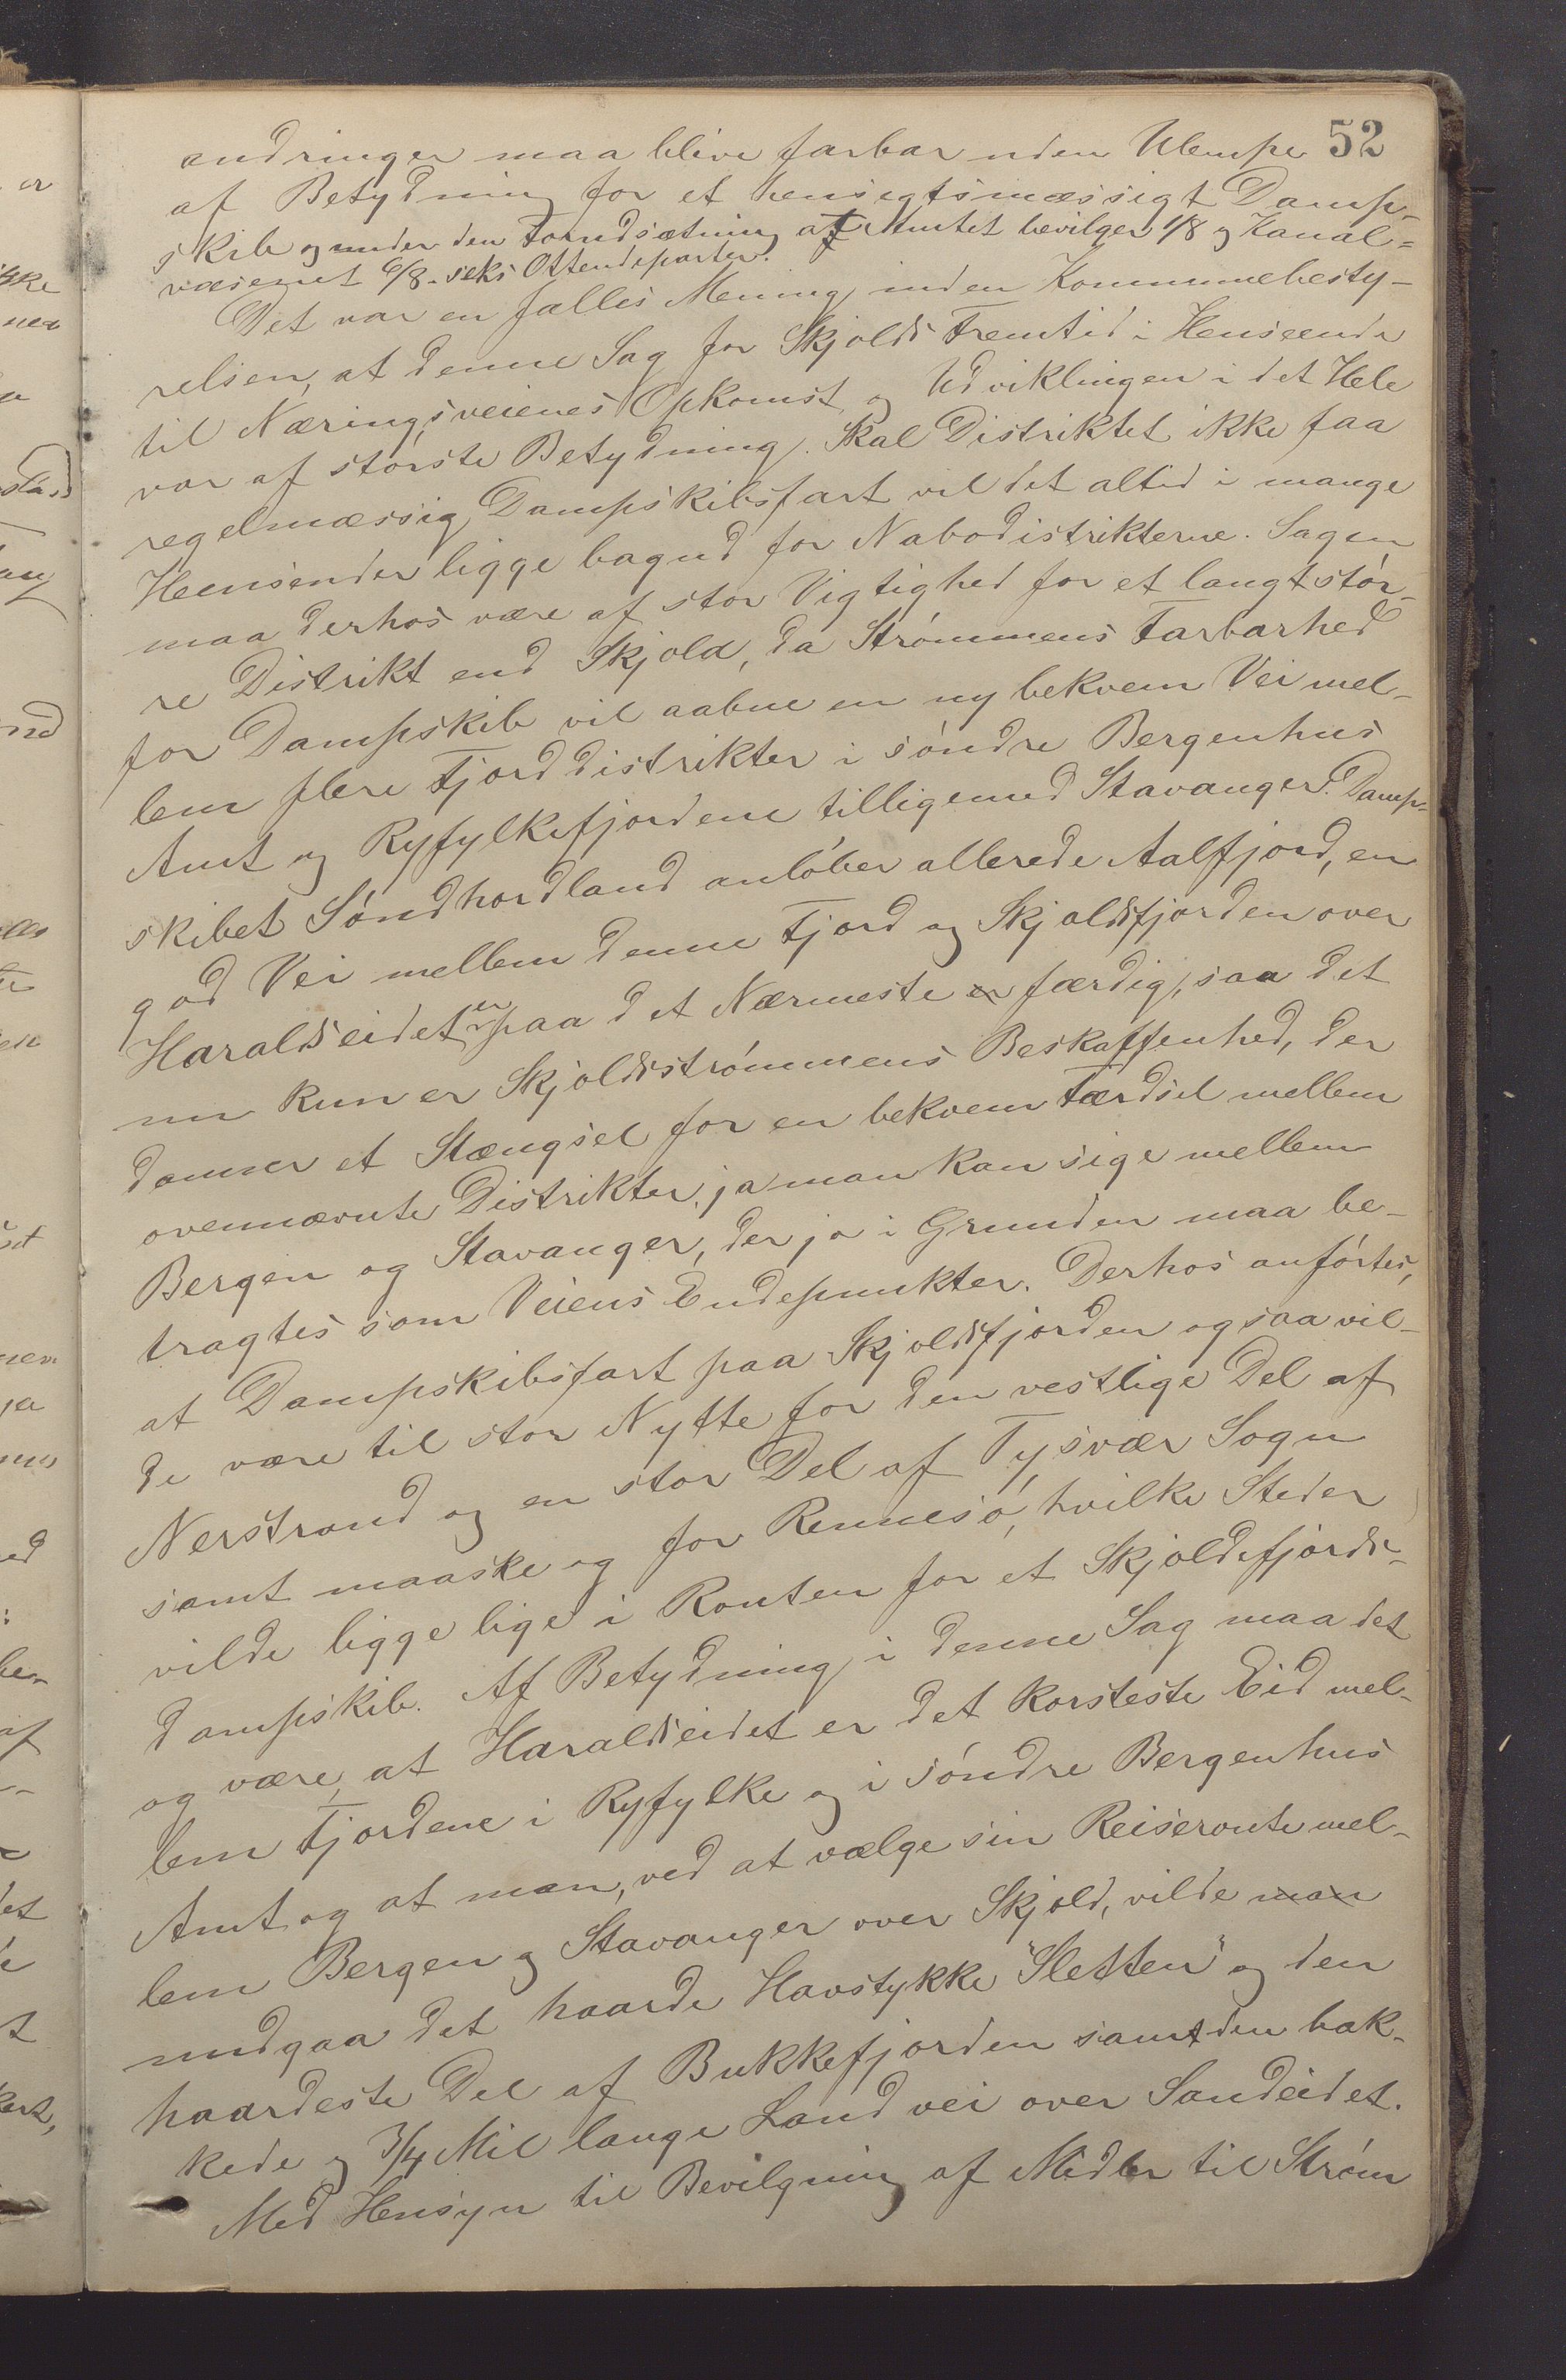 52
andringer maa blive farbar uden Ulempe
af Betydning for et hensigtsmæssigt Damp-
skib og under den Forudsætning at Amtet bevilger 1/8 og Kanal-
væsenet 6/8 - seks Ottendeparter.
Det var en fælles Mening inden Kommunebesty-
relsen, at denne Sag for Skjolds Fremtid i Henseende
til Næringsveienes Opkomst og Udviklingen i det Hele
var af største Betydning. Skal Distriktet ikke faa
regelmæssig Dampskibsfart vil det altid i mange
Heensender ligge bagud for Nabodistrikterne. Sagen
maa derhos være af stor Vigtighed for et langt stør-
re Distrikt end Skjold, da Strømmens Farbarhed
for Dampskib vil aabne en ny bekvem Vei mel-
lem flere Fjorddistrikter i søndre Bergenhus
Amt og Ryfylkefjordene tilligemed Stavanger. Damp-
skibet Søndhordland anløber allerede Aalfjord, en
god Vei mellem denne Fjord og Skjoldsfjorden over
Haraldseidet er paa det Nærmeste er færdig, saa det
nu kun er Skjoldsstrømmens Beskaffenhed, der
danner et Stængsel for en bekvem Færdsel mellem
ovennævnte Distrikter, ja man kan sige mellem
Bergen og Stavanger, der jo i Grunden maa be-
tragtes som Veiens Endepunkter. Derhos anførtes,
at Dampskibsfart paa Skjoldsfjorden ogsaa vil-
de være til stor Nytte for den vestlige Del af
Nerstrand og en stor Del af Tysvær Sogn
samt maaske og for Rennesø, hvilke Steder
vilde ligge lige i Routen for et Skjoldefjords-
dampskib. Af Betydning i denne Sag maa det
og være, at Haraldseidet er det korsteste Eid mel-
lem Fjordene i Ryfylke og i søndre Bergenhus
Amt og at man, ved at vælge sin Reiseroute mel-
lem Bergen og Stavanger over Skjold, vilde man
undgaa det haarde Havstykke "Sletten" og den
haardeste Del af Bukkefjorden samt den bak-
kede og 3/4 Mil lange Landvei over Sandeidet.
Med Hensyn til Bevilgning af Midler til Strøm